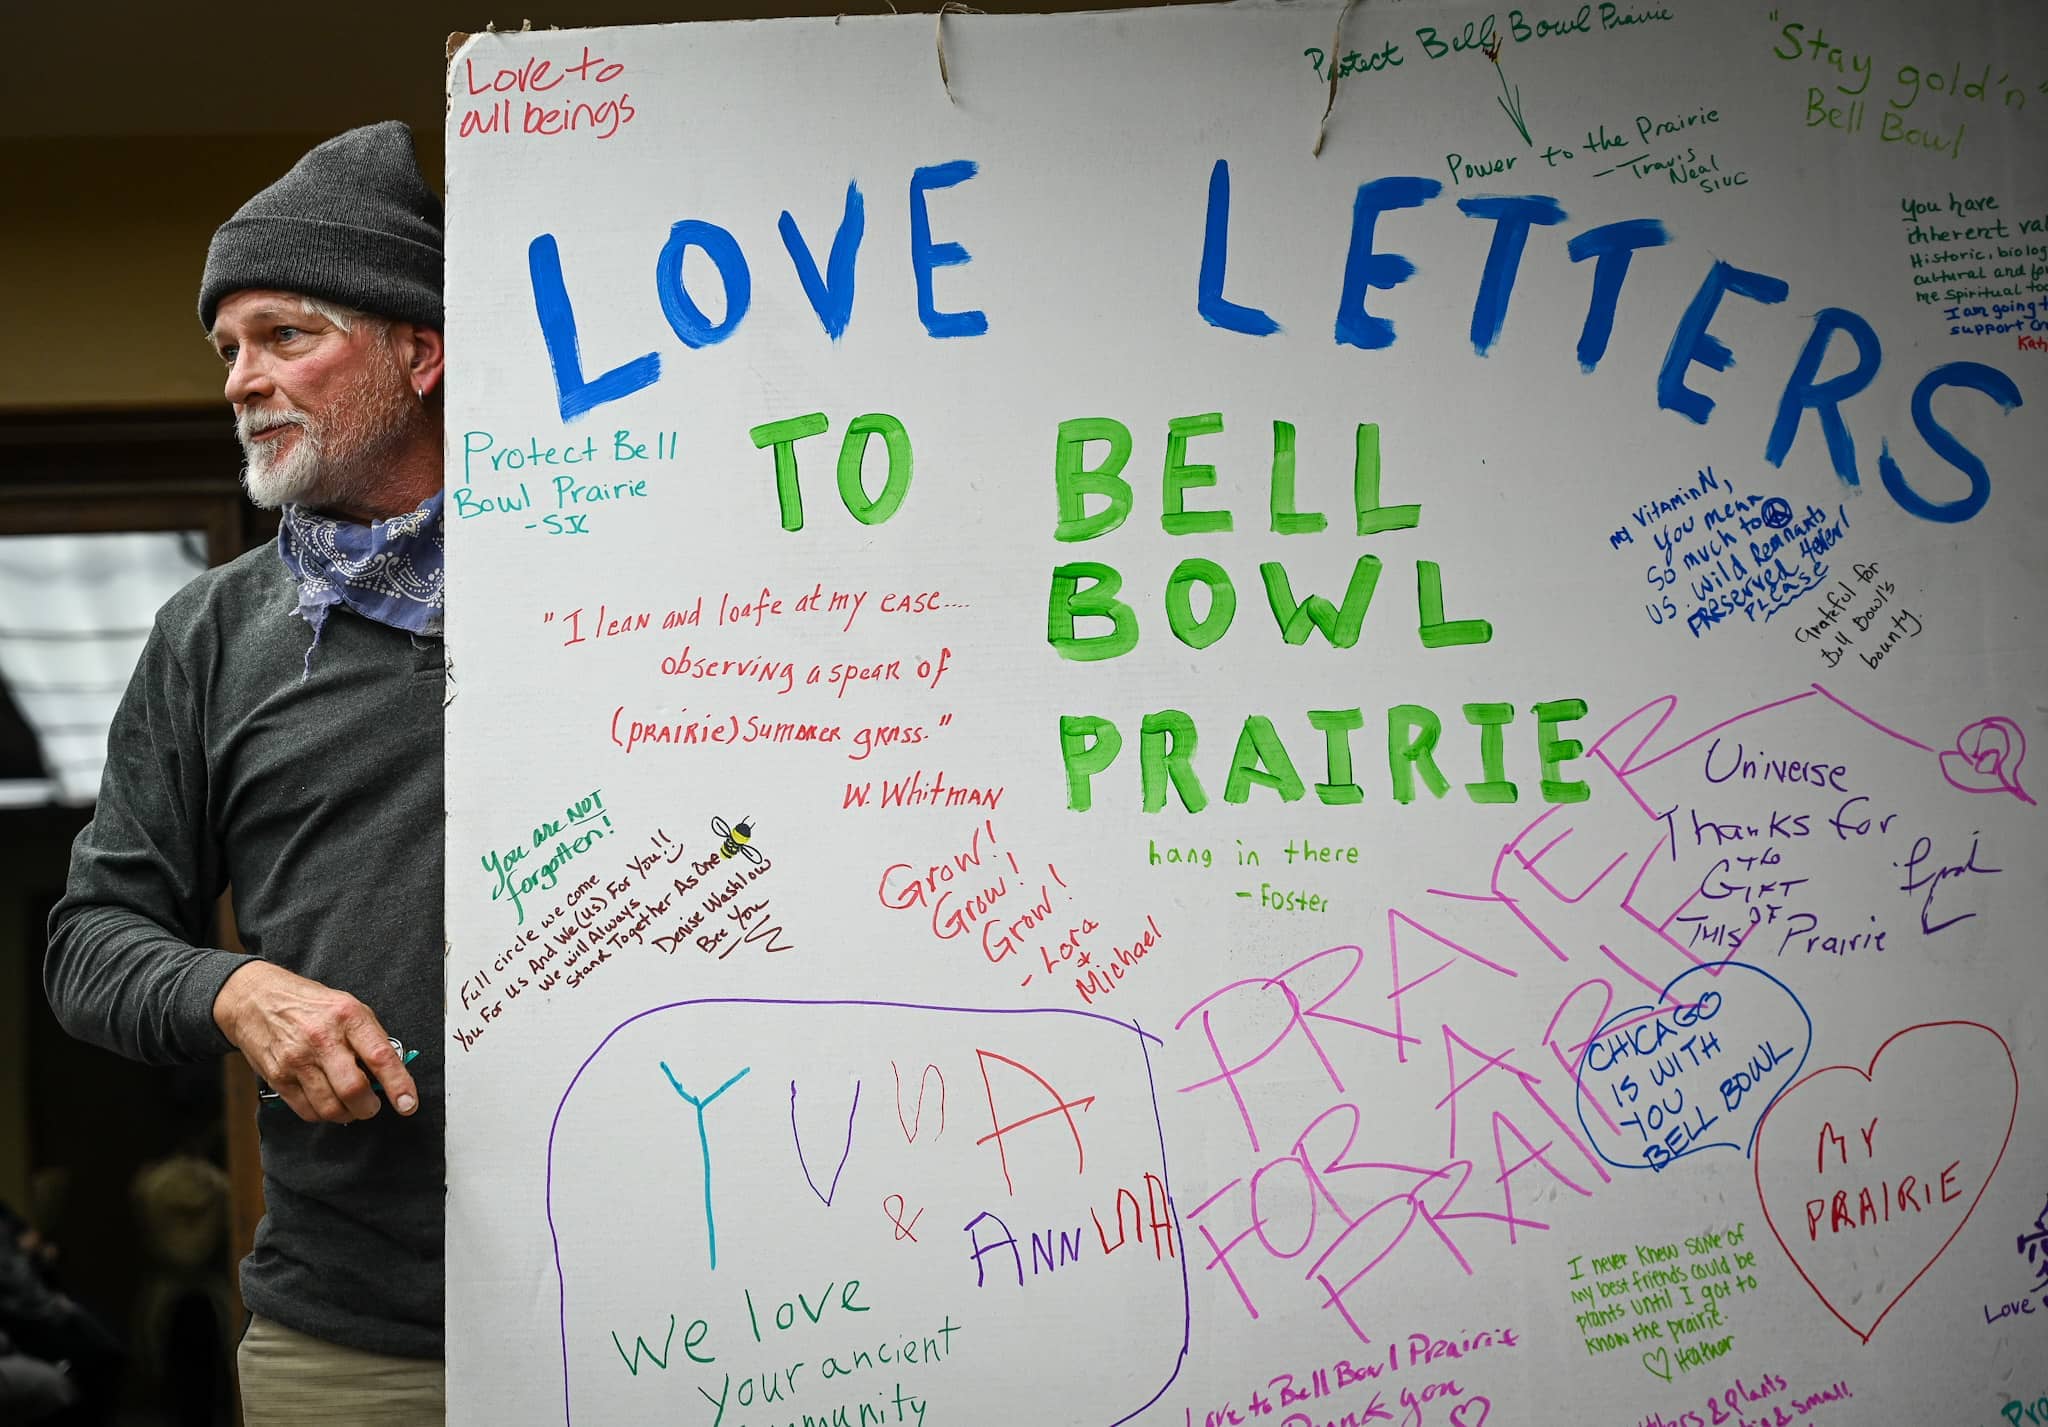 Love to
all beings
Protect Bell Bowl Prairie
Power to the Prairie
- Travis
Neal
SIUC
"Stay gold'n"
Bell Bowl
You have
inherent
Historic,
cultural and
me spiritual too
I am going
support
LOVE LETTERS
TO BELL
BOWL
PRAIRIE
Protect Bell
Bowl Prairie
-SJC
my Vitamin N,
you mean
so much to
us. Wild Remnants
Preserved 4ever!
PLEASE
Grateful for
Bell Bowl's
bounty.
"I lean and loafe at my ease....
observing a spear of
(prairie) summer grass."
W. Whitman
You are NOT
forgotten!
Full circle we come
You For us And We (us) For You!!
We will Always
Stand Together As One
Denise Washlow
Bee You
Grow!
Grow!
Grow!
- Lora
+
Michael
hang in there
- Foster
PRAYER
FOR A
PRAIRIE
Universe
Thanks for
The
Gift
of
This Prairie
CHICAGO
IS WITH
YOU
BELL BOWL
MY
PRAIRIE
YUNA
&
ANNUNA
We love
your ancient
I never knew some of
my best friends could be
plants until I got to
know the prairie.
♡ Heather
Love to Bell Bowl Prairie
Thank you
& plants
& small.
Love